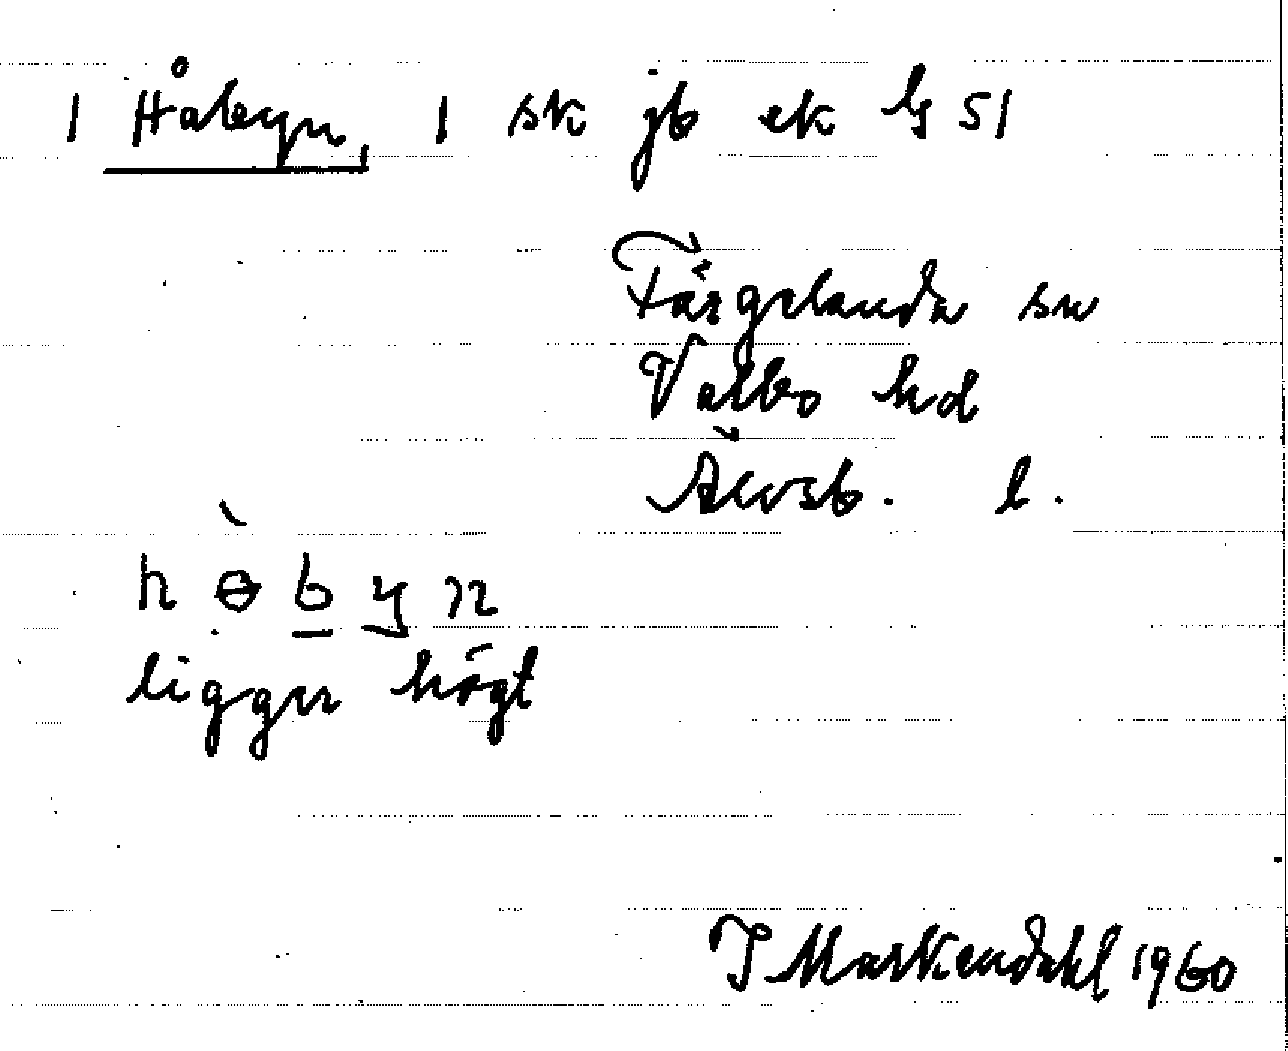 1 Håbyn, 1 sk jb ek bs 51
Färgelanda sn
Valbo hd
Älvsb. l.
h ɵ̀ b y n
ligger högt
J Markendahl 1960